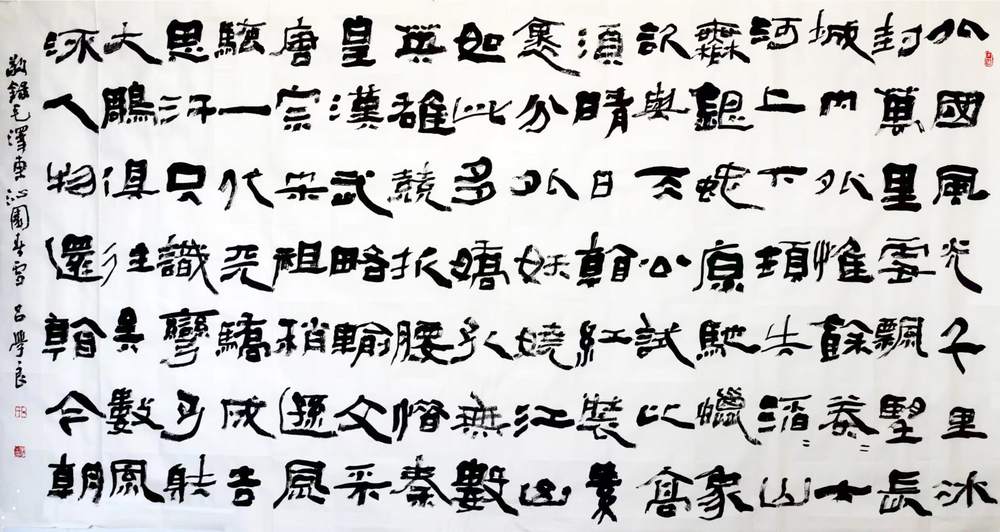 北國風光千里冰
封萬里雪飄望長
城内外惟餘莽〻大
河上下頓失滔〻山
舞銀蛇原馳蠟象
欲與天公試比高
須晴日看紅裝素
裹分外妖嬈江山
如此多嬌引無數
英雄競折腰惜秦
皇漢武略輸文采
唐宗宋祖稍遜風
騷一代天驕成吉
思汗只識彎弓射
大鵰俱往矣數風
流人物還看今朝
敬錄毛澤東沁園春雪 呂學良